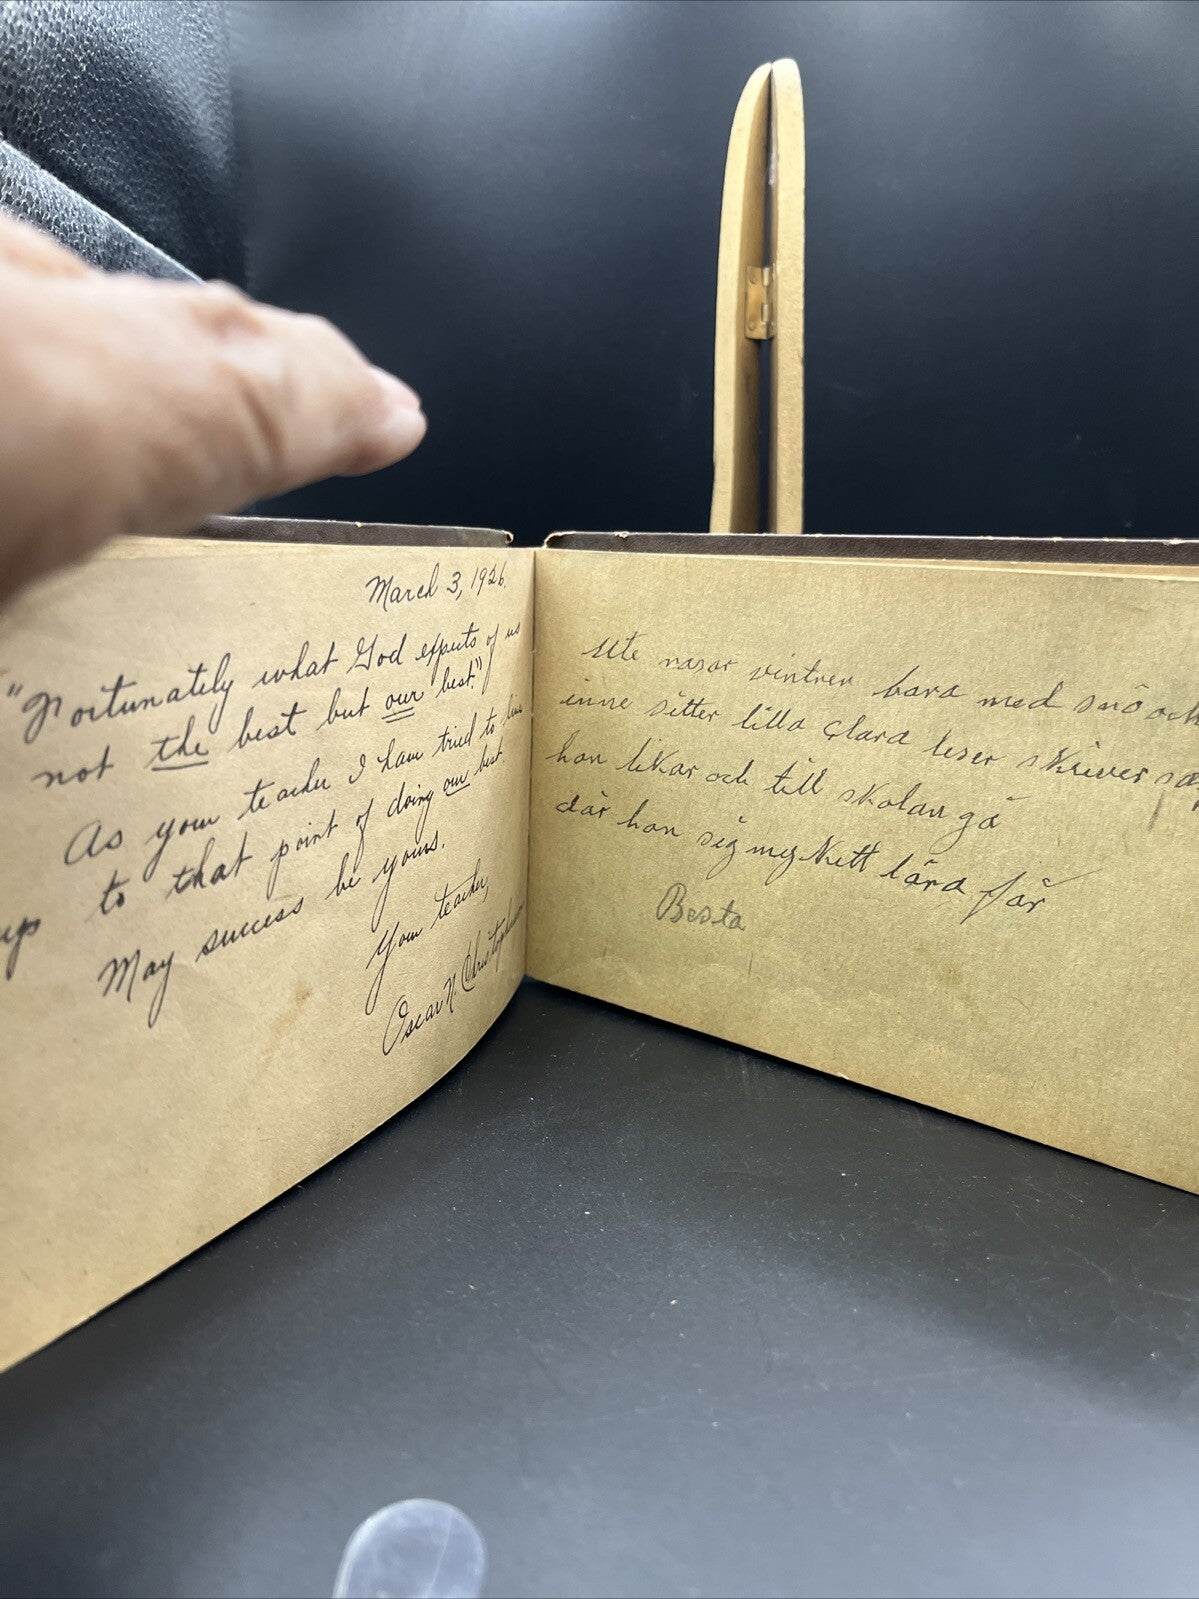 March 3, 1926.
"Fortunately what God expects of us
not the best but our best."
As your teacher I have tried to live
up to that point of doing our best.
May success be yours.
Your teacher,
Oscar N. Christopherson
Ute rasar vintren bara med snö och
inne sitter lilla Clara leser skriver
hon likar och till skolan gå
där hon sig mykett lära får
Besta